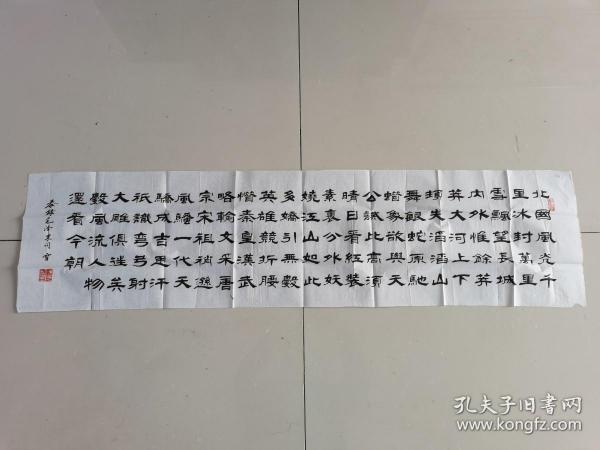 北國風光千
里冰封萬里
雪飄望長城
内外惟餘莽
莽大河上下
頓失滔滔山
舞銀蛇原馳
蜡象欲與天
公試比高須
晴日看紅裝
素裹分外妖
嬈江山如此
多嬌引無數
英雄競折腰
惜秦皇漢武
略輸文采唐
宗宋祖稍遜
風騷一代天
驕成吉思汗
祇識彎弓射
大雕俱往矣
數風流人物
還看今朝
孔夫子旧书网
www.kongfz.com